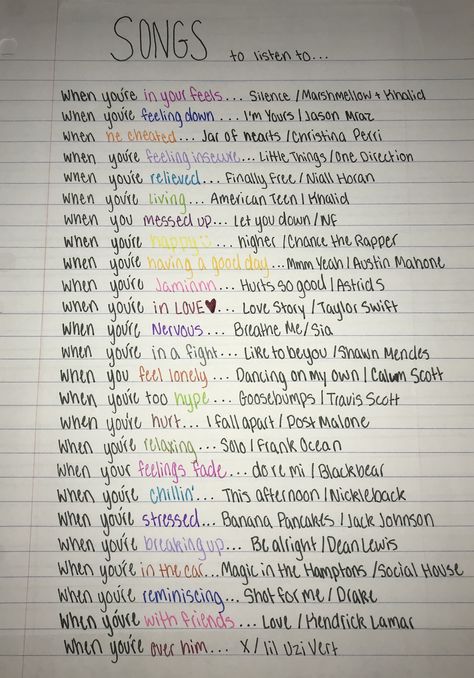 SONGS to listen to...
When you're in your feels... Silence/Marshmellow + Khalid
When you're feeling down... I'm Yours/Jason Mraz
When he cheated... Jar of hearts/Christina Perri
When you're feeling insecure... Little Things/One Direction
When you're relieved... Finally Free/Niall Horan
When you're living... American Teen/Khalid
When you messed up... Let you down/NF
When you're happy... higher/Chance the Rapper
When you're having a good day... Mmm Yeah/Austin Mahone
When you're Jaminnn... Hurts so good/Astrid S
When you're in LOVE♥... Love Story/Taylor Swift
When you're Nervous... Breathe Me/Sia
When you're in a fight... Like to be you/Shawn Mendes
When you feel lonely... Dancing on my own/Calum Scott
When you're too hype... Goosebumps/Travis Scott
When you're hurt... I fall apart/Post Malone
When you're relaxing... Solo/Frank Ocean
When your feelings fade... do re mi/Blackbear
When you're chillin'... This afternoon/Nickleback
When you're stressed... Banana Pancakes/Jack Johnson
When you're breaking up... Be alright/Dean Lewis
When you're in the car... Magic in the Hamptons/Social House
When you're reminiscing... Shot for me/Drake
When you're with friends... Love/Kendrick Lamar
When you're over him... X/lil Uzi Vert